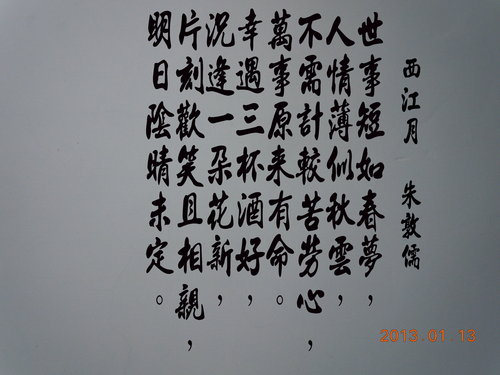 西江月 朱敦儒
世事短如春夢，
人情薄似秋雲，
不需計較苦勞心，
萬事原来有命。
幸遇三杯酒好，
況逢一朵花新，
片刻歡笑且相親，
明日陰晴未定。
2013.01.13